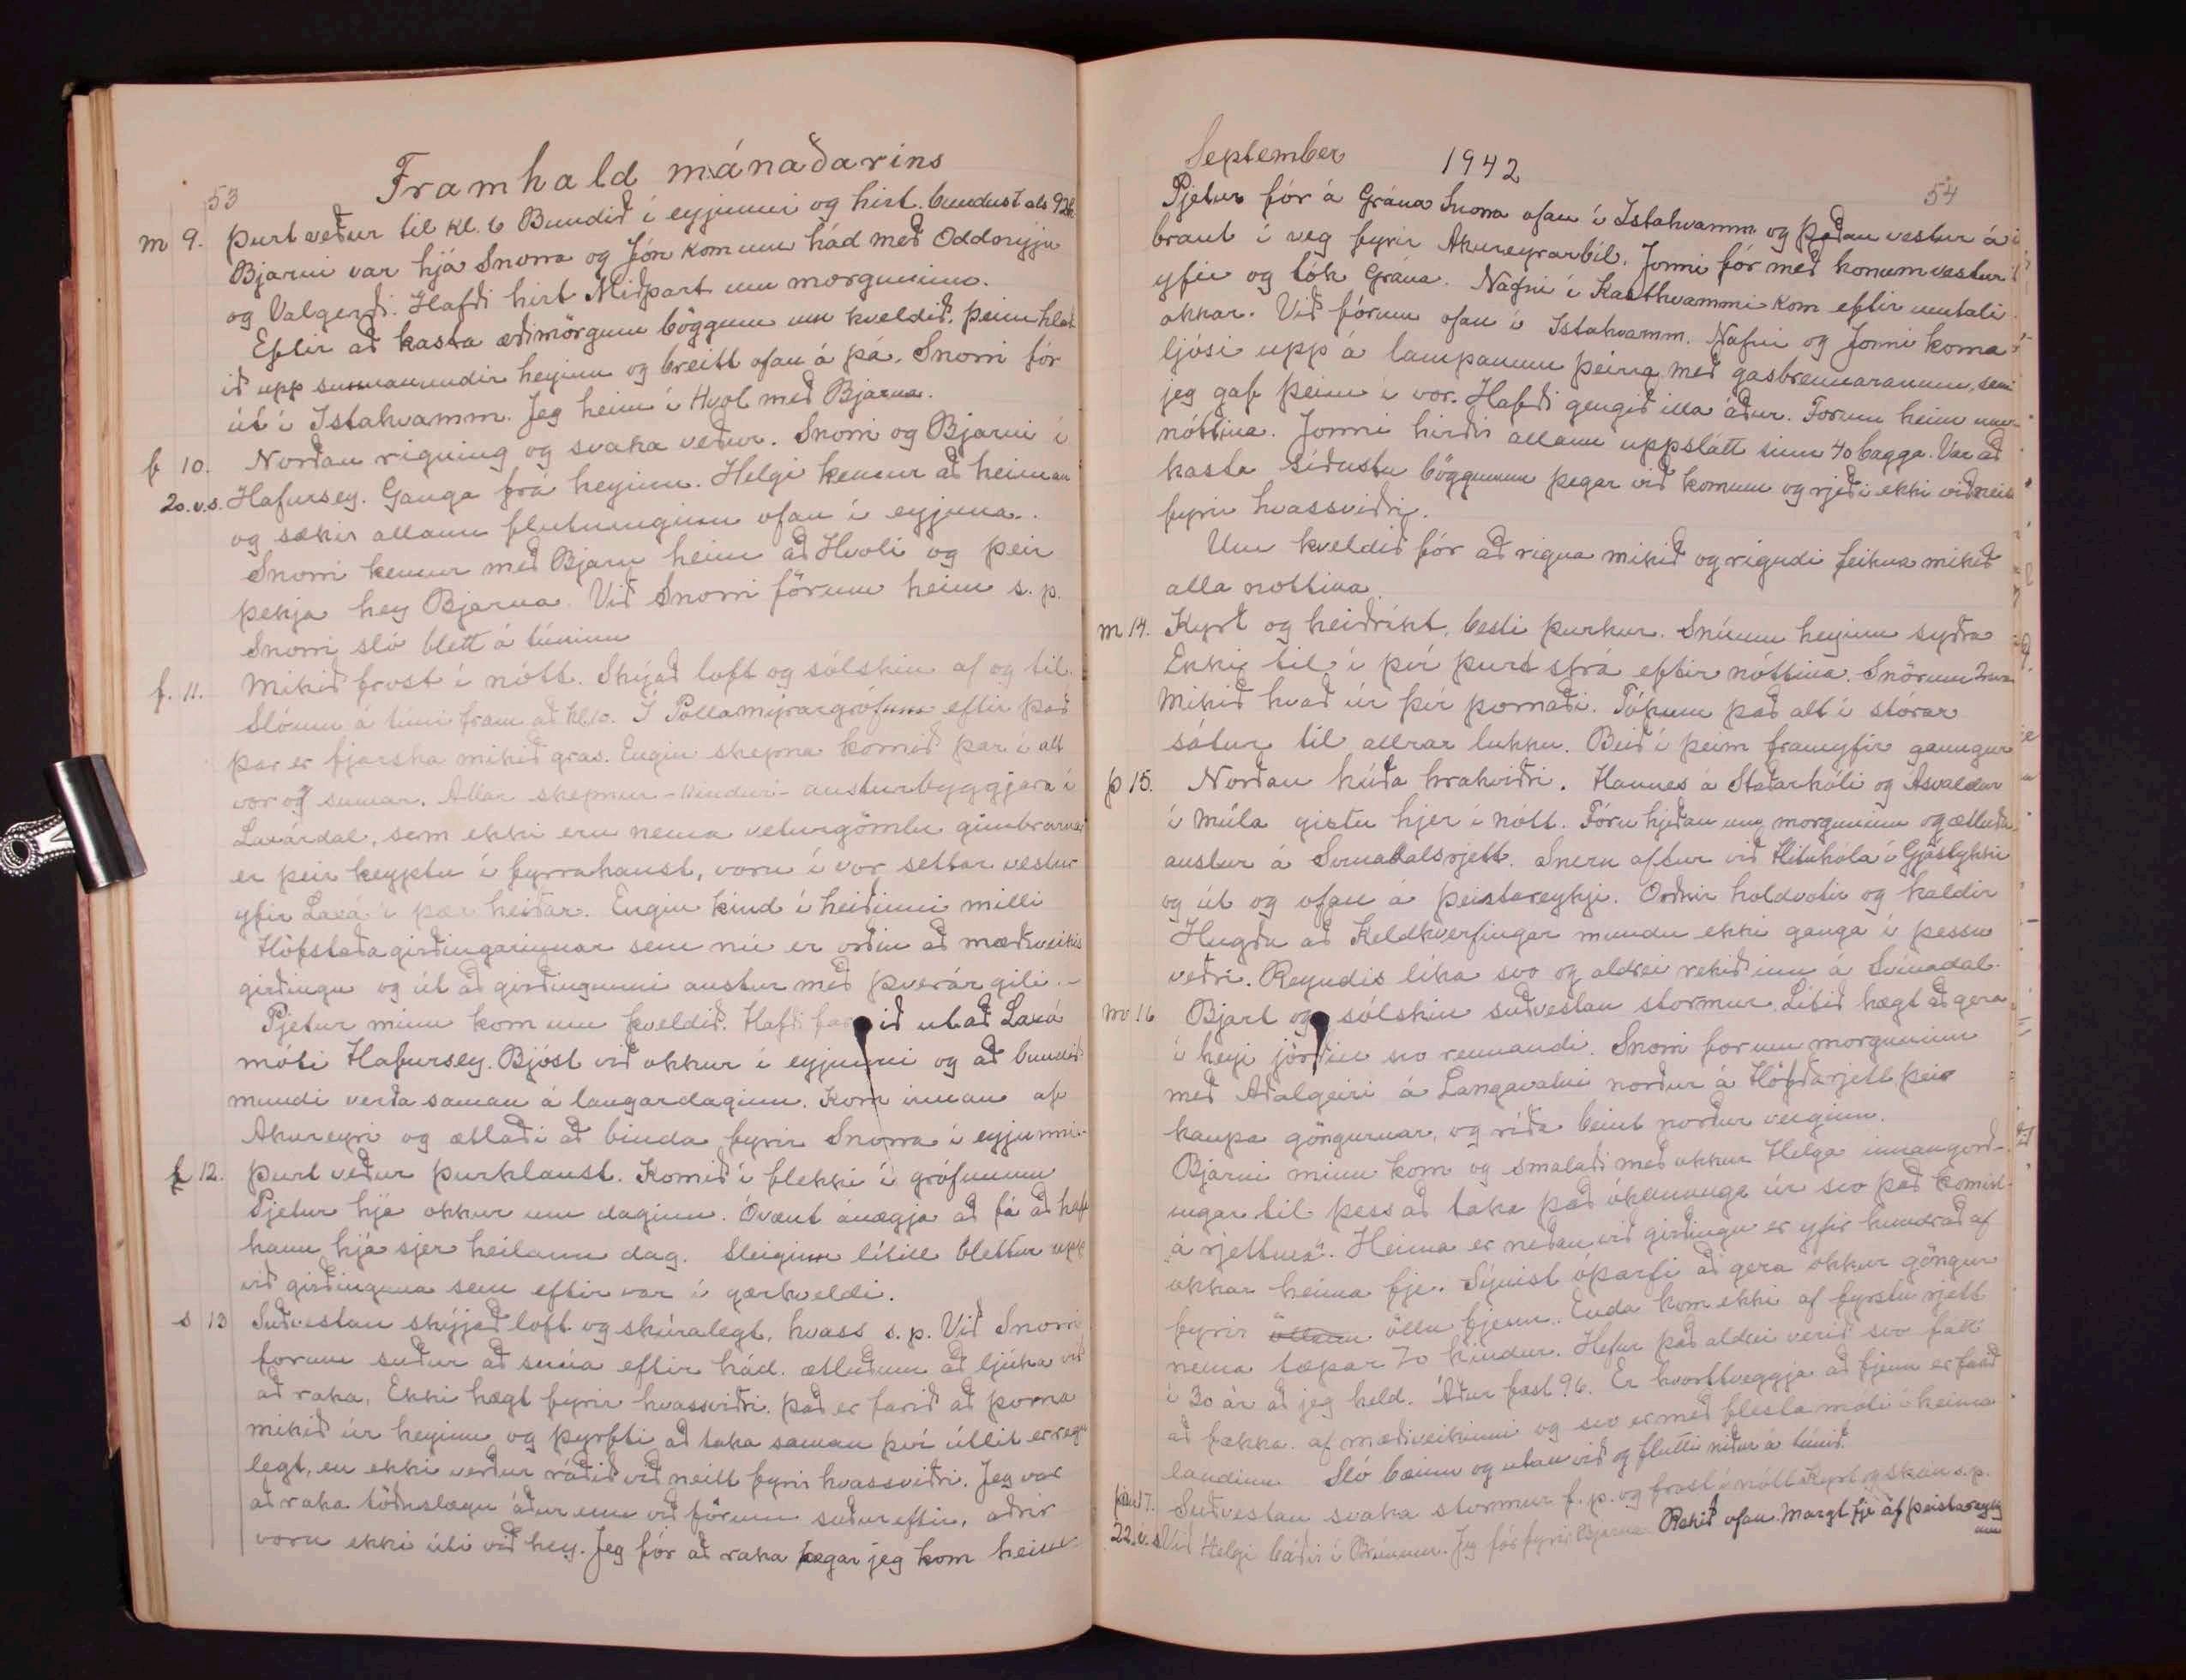 Framhald mánaðarins
53
m 9. Þurt veður til kl. 6 Bundið í eyjunni og hirt. bundust als 92 h.
Bjarni var hjá Snorra og Jón kom um hád með Oddnyju
og Valgerði. Hafði hirt Miðpart um morguninn.
Eftir að kasta æðimörgum böggum um kveldið. Þeim hlað
ið upp sunnanundir heyinu og breitt ofan á þá. Snorri fór
út í Ystahvamm. Jeg heim í Hvol með Bjarna.
f 10. Norðan rigning og svaka veður. Snorri og Bjarni í
20.v.s. Hafursey. Ganga frá heyinu. Helgi kemur að heiman
og sækir allann flutninginn ofan í eyjuna.
Snorri kemur með Bjarna heim að Hvoli og þeir
þekja hey Bjarna. Við Snorri förum heim s. p.
Snorri sló blett á túninu
f. 11. Mikið frost í nótt. Skýjað loft og sólskin af og til.
Slóum á túni fram að kl. 10. Í Pollamýrargrófum eftir það
þar er fjarska mikið gras. Engin skepna komið þar í alt
vor og sumar. Allar skepnur - kindur - austurbyggjara í
Laxárdal, sem ekki eru nema veturgömlu gimbrarnar
er þeir keyptu í fyrrahaust, voru í vor settar vestur
yfir Laxá í þær heiðar. Engin kind í heiðinni milli
Hófstaðagirðingarinnar sem nú er orðin að mæðiveikis
girðingu og út að girðingunni austur með Þverár gili. -
Pjetur minn kom um kveldið. Hafði farið út að Laxá
móti Hafursey. Bjóst við okkur í eyjunni og að bundið
mundi verða saman á laugardaginn. Kom innan af
Akureyri og ætlaði að binda fyrir Snorra í eyjunni.
f 12. Þurt veður þurklaust. Komið í flekki í grófunum
Pjetur hjá okkur um daginn. Óvænt ánægja að fá að hafa
hann hjá sjer heilann dag. Sleginn lítill blettur upp
við girðinguna sem eftir var í gærkveldi.
s 13 Suðvestan skýjað loft og skúralegt, hvass s. p. Við Snorri
forum suður að snúa eftir hád. ætluðum að ljúka við
að raka. Ekki hægt fyrir hvassviðri. Það er farið að þorna
mikið úr heyinu og þyrfti að taka saman því útlit er regn
legt, en ekki verður ráðið við neitt fyrir hvassviðri. Jeg var
að raka töðuslægu áður enn við förum suðureftir, aðrir
voru ekki úti við hey. Jeg fór að raka þegar jeg kom heim
September 1942
54
Pjetur fór á Grána Snorra ofan í Ystahvamm og þaðan vestur á
braut í veg fyrir Akureyrarbíl. Jonni fór með honum vestur
yfir og tók Grána. Nafni í Kasthvammi kom eftir umtali
okkar. Við fórum ofan í Ystahvamm. Nafni og Jonni koma
ljósi upp á lampanum þeirra með gasbrennaranum, sem
jeg gaf þeim í vor. Hafði gengið illa áður. Forum heim um
nóttina. Jonni hirðir allann uppslátt sinn 40 bagga. Var að
kasta síðustu böggunum þegar við komum og rjeði ekki við neitt
fyrir hvassviðri.
Um kveldið fór að rigna mikið og rigndi feikna mikið
alla nottina.
m 14. Kyrt og heiðríkt, besti þurkur. Snúum heyinu syðra
Ekki til í því þurt strá eftir nóttina. Snörum
Mikið hvað úr því þornaði. Tókum það alt í stórar
sátur til allrar lukku. Beið í þeim framyfir gaungur
þ 15. Norðan húða hrakviðri. Hannes á Staðarhóli og Ásvaldur
í Múla gistu hjer í nótt. Fóru hjeðan um morguninn og ætluðu
austur á Svínadalsrjett. Sneru aftur við Hituhóla í Gjástykki
og út og ofan á Þeistareyki. Orðnir holdvotir og kaldir
Hugðu að Keldhverfingar mundu ekki ganga í þessu
veðri. Reyndis líka svo og aldrei rekið inn á Svínadal.
mv 16 Bjart og sólskin suðvestan stormur. Lítið hægt að gera
í heyi jörðin svo rennandi. Snorri for um morguninn
með Aðalgeiri á Langavatni norður á Höfðarjett þeir
kaupa göngurnar, og ríða beint norður veiginn.
Bjarni minn kom og smalaði með okkur Helga innangirð-
ingar til þess að taka það ókunnuga úr svo það komist
"á rjettina". Heima er neðan við girðingu er yfir hundrað af
okkar heima fje. Sýnist óþarfi að gera okkur göngur
fyrir öllum öllu fjenu. Enda kom ekki af fyrstu rjett
nema tæpar 70 kindur. Hefur það aldrei verið svo fátt
í 30 ár að jeg held. Áður fæst 96. Er hvorttveggja að fjenu er farið
að fækka af mæðiveikinni og svo er með flesta móti í heima
landinu. Sló bæinn og utan við og flutti niður á túnið.
fimt 17. Suðvestan svaka stormur f. p. og frost í nótt. Kyrt og skúrir s. p.
22.v.s Við Helgi báðir í Brúnum. Jeg fór fyrir Bjarna. Rekið ofan margt fje af Þeistareykj
um